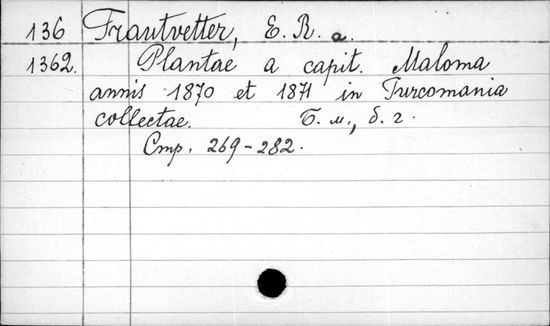 136 Trautvetter, E. R. a.
1362. Plantae a capit. Maloma
annis 1870 et 1871 in Turcomania
collectae. Б. м., б. г.
Стр. 269-282.